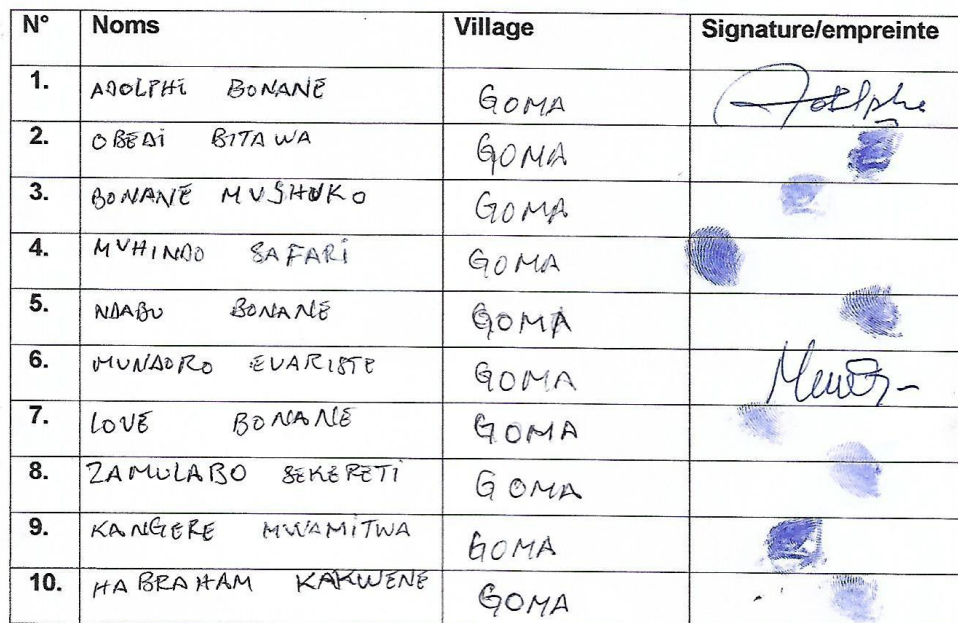 N° Noms Village Signature/empreinte
1. ADOLPHE BONANE GOMA Adolphe
2. OBEDI BITAWA GOMA
3. BONANE MUSHUKO GOMA
4. MUHINDO SAFARI GOMA
5. NDABU BONANE GOMA
6. MUNDORO EVARISTE GOMA
7. LOVE BONANE GOMA
8. ZAMULABO SEKERETI GOMA
9. KANGERE MWAMITWA GOMA
10. HABRAHAM KAKWENE GOMA